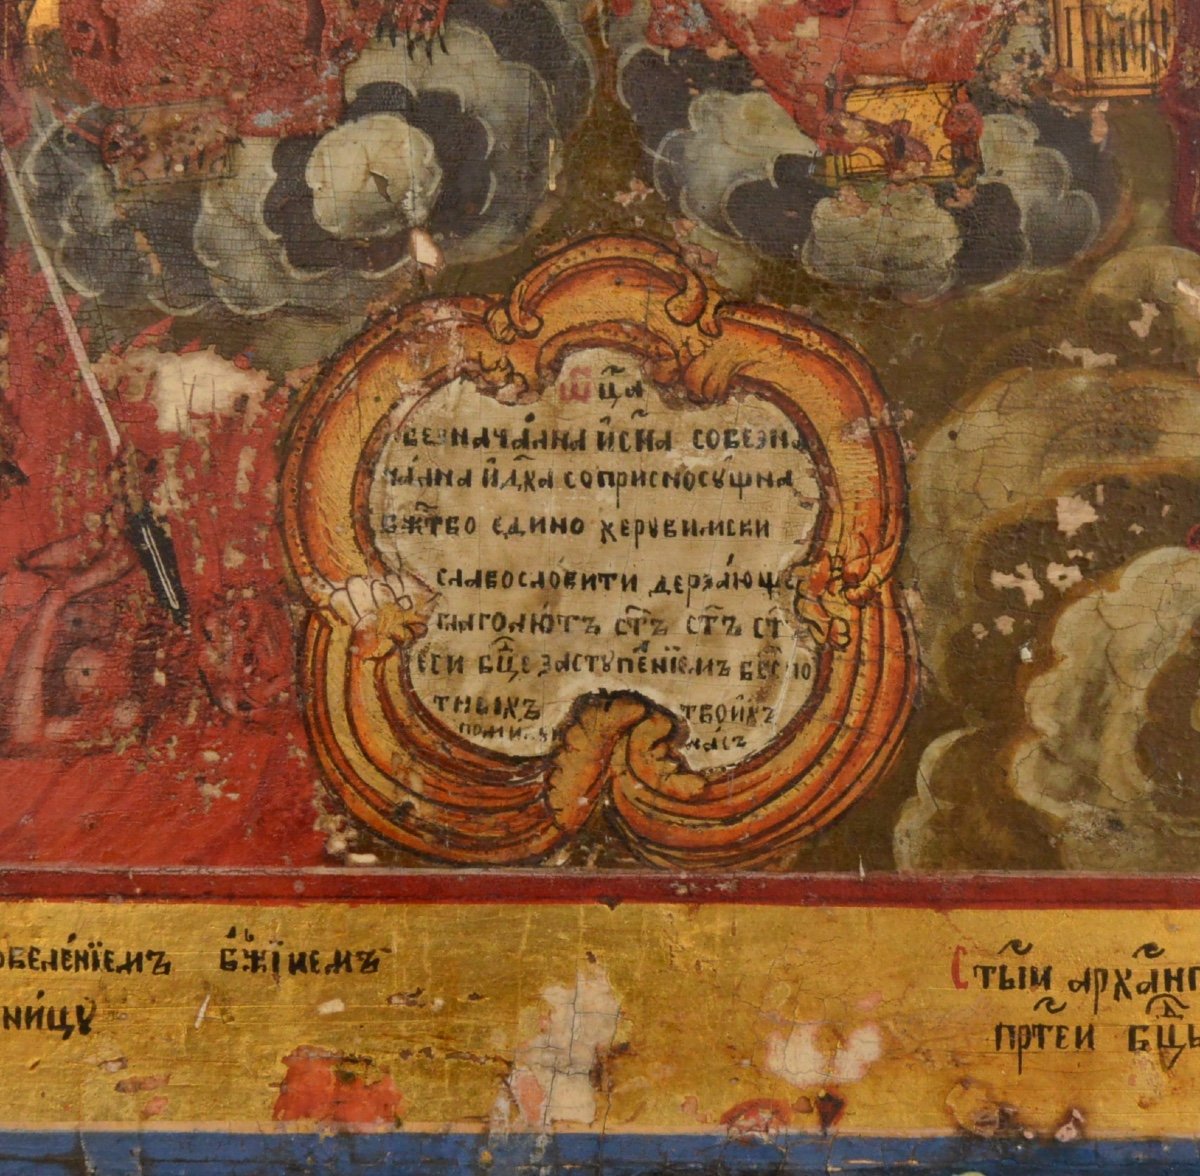 Ѿ ц҃а
безнача́лна и҆ сн҃а собезна
ча́лна и҆ дх҃а соприсносу́щна
бж҃тво едино херувимски
славословити дерза́юще
глаго́лютъ ст҃ъ ст҃ъ ст҃
еси бц҃е заступле́нїемъ бесп
тныхъ твои́хъ
поми на́съ
овеле́нїемъ бж҃їиемъ
ни́цу
Сты҃и арха҃нг
пр҃теи бц҃ы